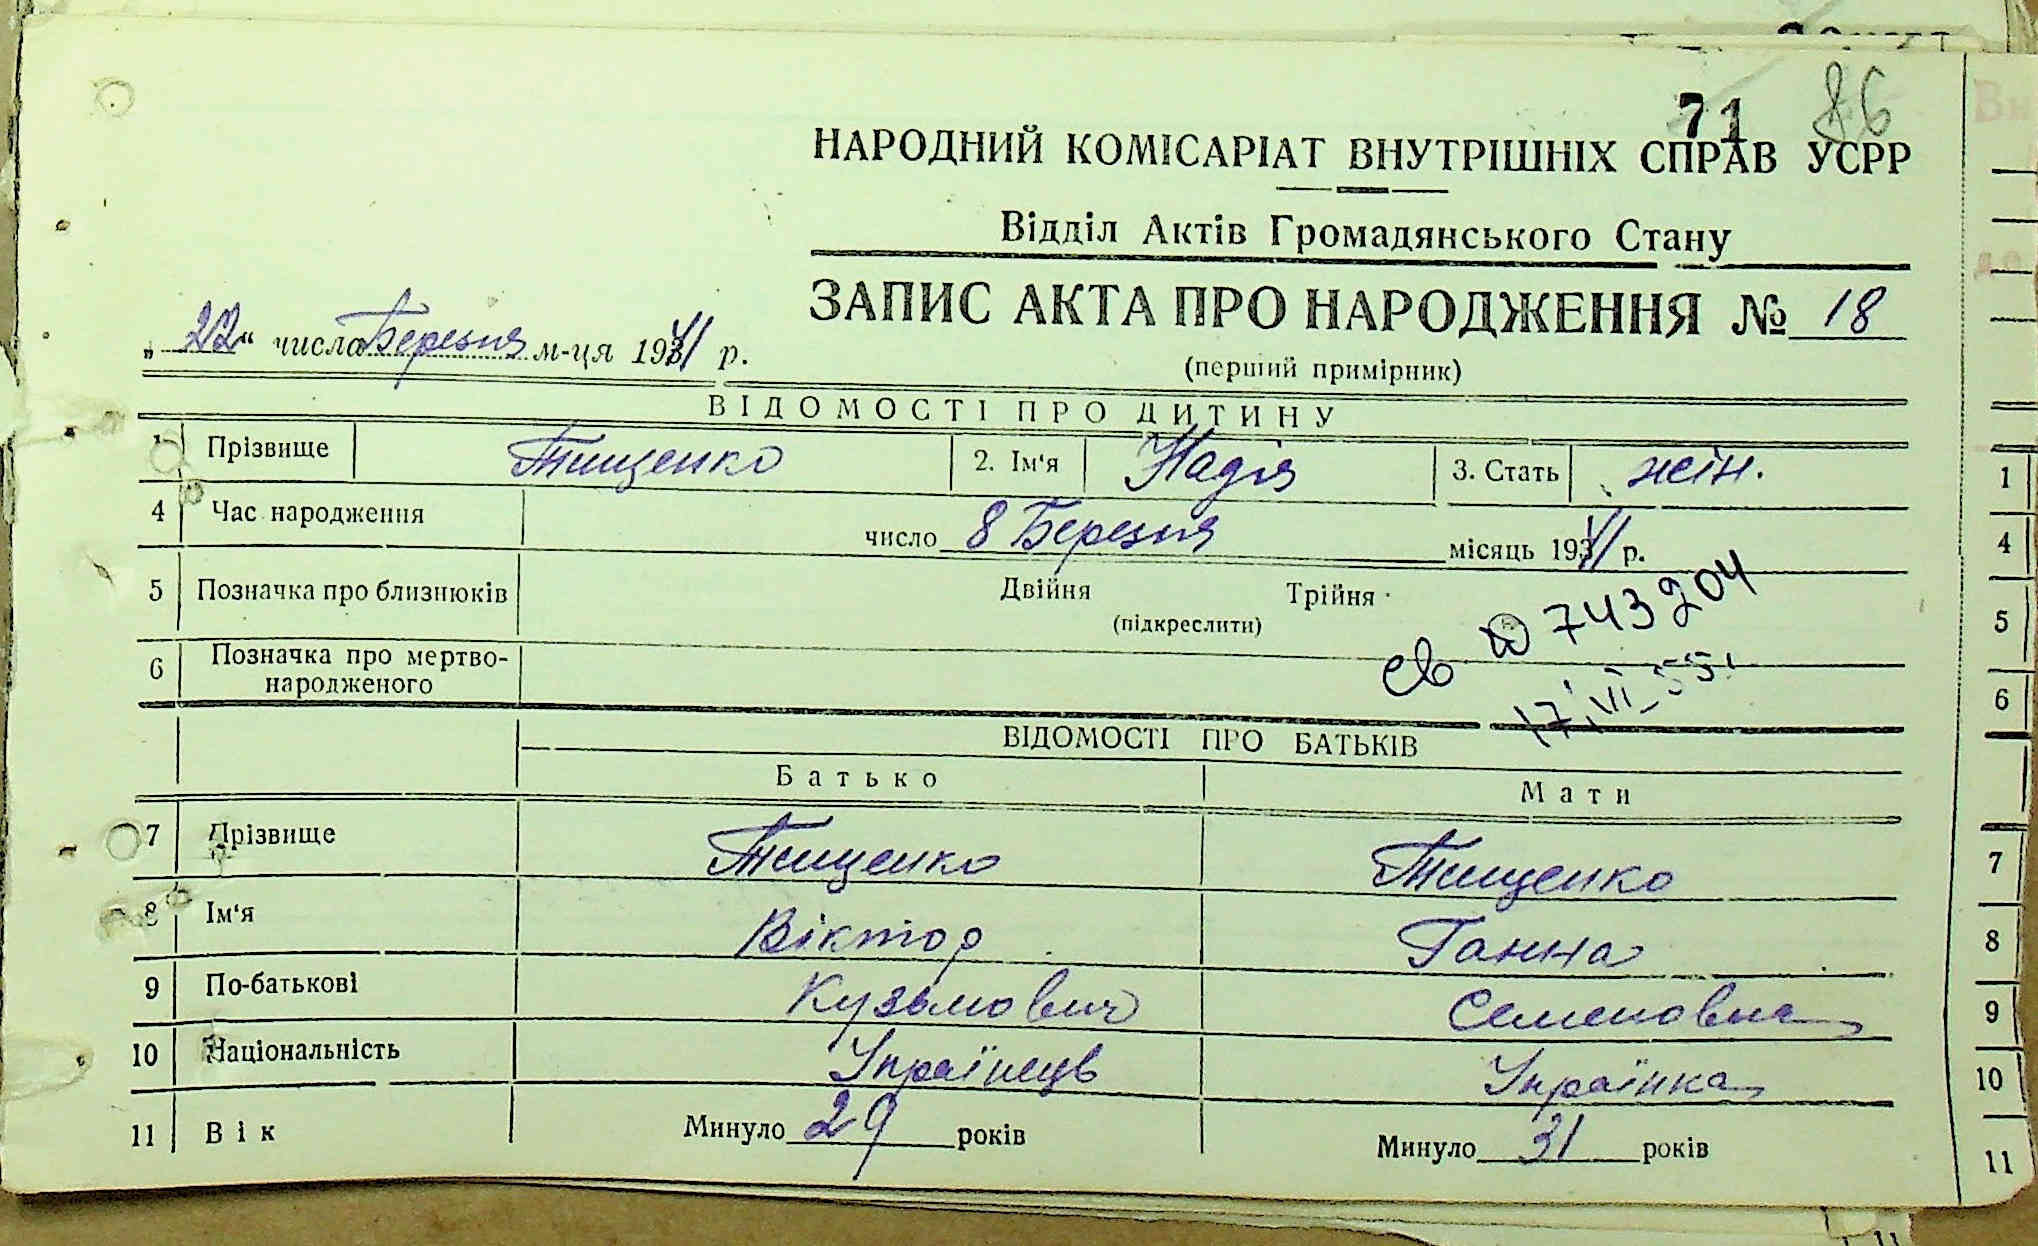 71 86
НАРОДНИЙ КОМІСАРІАТ ВНУТРІШНІХ СПРАВ УСРР
Відділ Актів Громадянського Стану
ЗАПИС АКТА ПРО НАРОДЖЕННЯ № 18
(перший примірник)
„22“ числа Березня м-ця 1941 р.
ВІДОМОСТІ ПРО ДИТИНУ
1 Прізвище Тищенко 2. Ім'я Надія 3. Стать жін.
4 Час народження число 8 Березня місяць 1941 р.
5 Позначка про близнюків Двійня Трійня
(підкреслити)
св Ю 743204
6 Позначка про мертво-
народженого
17.VI-55.
ВІДОМОСТІ ПРО БАТЬКІВ
Батько Мати
7 Прізвище Тищенко Тищенко
8 Ім'я Віктор Ганна
9 По-батькові Кузьмович Семеновна
10 Національність Українець Українка
11 Вік Минуло 29 років Минуло 31 років
1
4
5
6
7
8
9
10
11